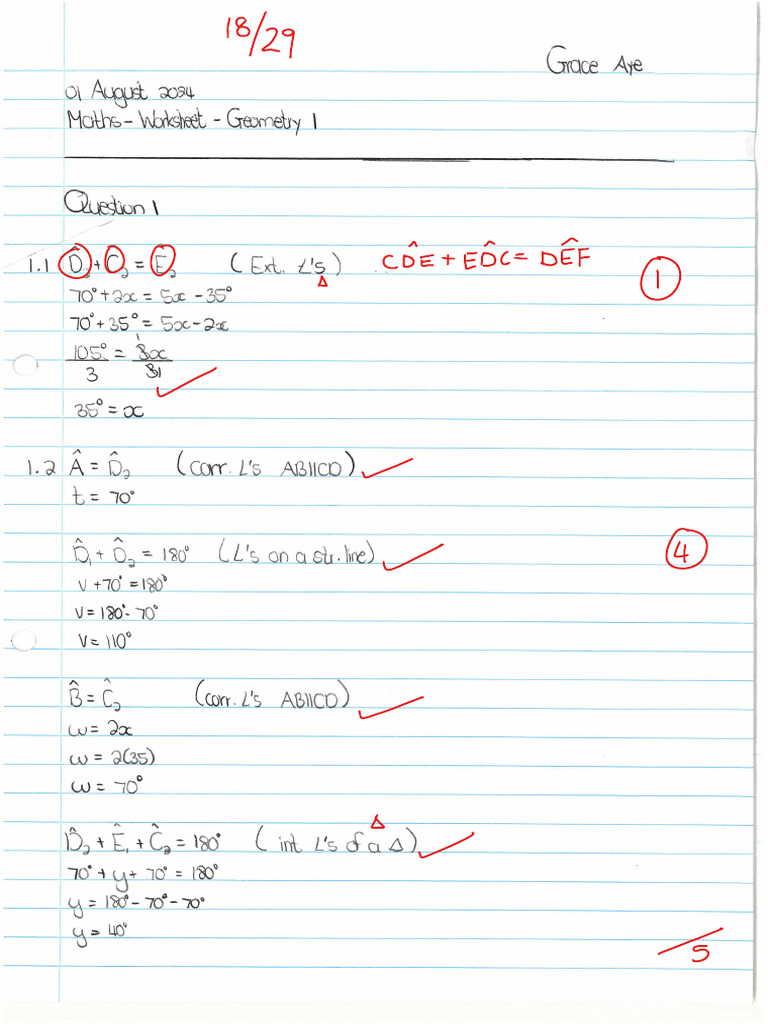 18/29
Grace Aye
01 August 2024
Maths - Worksheet - Geometry 1
Question 1
1.1 D̂₂ + Ĉ₂ = Ê₂ (Ext. L's) Δ CD̂E + ED̂C = DÊF ①
70° + 2x = 5x - 35°
70° + 35° = 5x - 2x
105° = 3x
3 31
35° = x
1.2 Â = D̂₂ (corr. L's AB||CD)
t = 70°
D̂₁ + D̂₂ = 180° (L's on a str. line) ④
v + 70° = 180°
v = 180° - 70°
v = 110°
B̂ = Ĉ₂ (corr. L's AB||CD)
w = 2x
w = 2(35)
w = 70°
Δ
D̂₂ + Ê₁ + Ĉ₂ = 180° (int L's of a Δ)
70° + y + 70° = 180°
y = 180° - 70° - 70°
y = 40°
/5